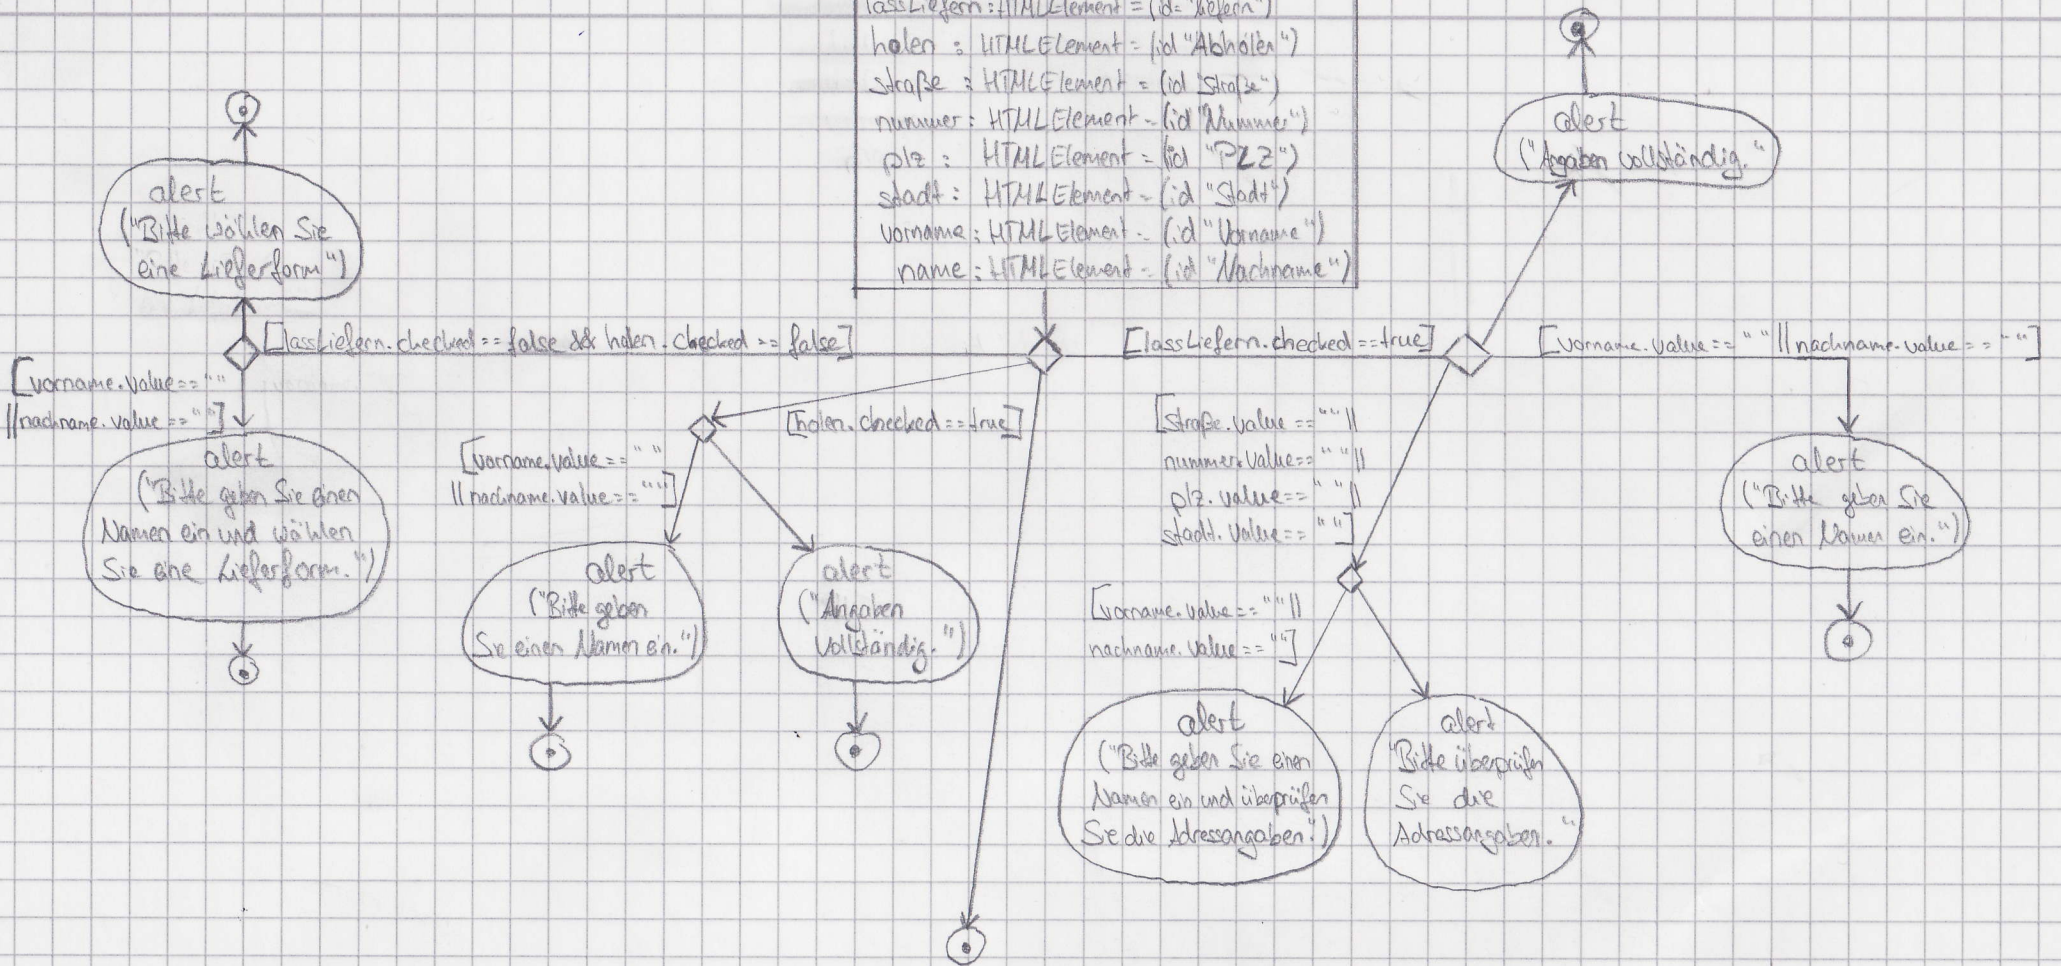 lassLiefern : HTMLElement = (id= "Liefern")
holen : HTMLElement = (id "Abholen")
straße : HTMLElement = (id "Straße")
nummer : HTMLElement = (id "Nummer")
plz : HTMLElement = (id "PLZ")
stadt : HTMLElement = (id "Stadt")
vorname : HTMLElement = (id "Vorname")
name : HTMLElement = (id "Nachname")
alert
("Bitte wählen Sie
eine Lieferform")
[lassLiefern.checked == false && holen.checked == false]
[vorname.value == ""
|| nachname.value == ""]
alert
("Bitte geben Sie einen
Namen ein und wählen
Sie eine Lieferform.")
[holen.checked == true]
[vorname.value == ""
|| nachname.value == ""]
alert
("Bitte geben
Sie einen Namen ein.")
alert
("Angaben
vollständig.")
[lassLiefern.checked == true]
alert
("Angaben vollständig."
[vorname.value == "" || nachname.value == ""]
alert
("Bitte geben Sie
einen Namen ein.")
[straße.value == "" ||
nummer.value == "" ||
plz.value == "" ||
stadt.value == ""]
[vorname.value == "" ||
nachname.value == ""]
alert
("Bitte geben Sie einen
Namen ein und überprüfen
Sie die Adressangaben.")
alert
"Bitte überprüfen
Sie die
Adressangaben."